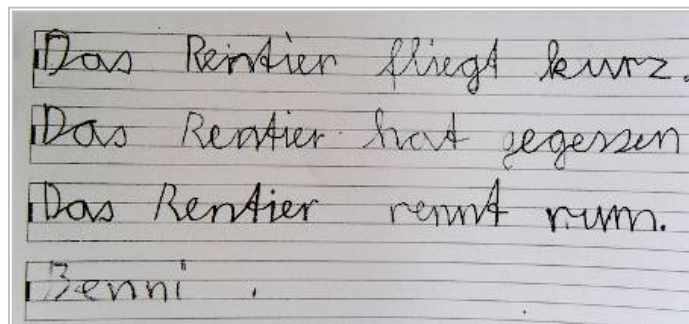 Das Rentier fliegt kurz.
Das Rentier hat gegessen
Das Rentier rennt rum.
Benni .